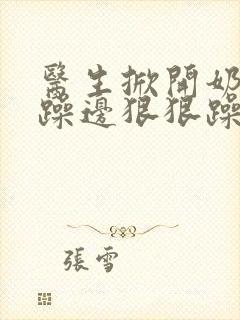 醫生掀開奶
躁邊狠狠躁
張雪